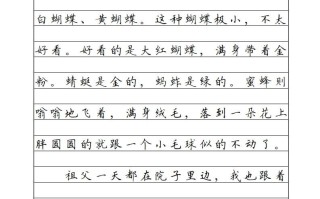 白蝴蝶、黄蝴蝶。这种蝴蝶极小，不太
好看。好看的是大红蝴蝶，满身带着金
粉。蜻蜓是金的，蚂蚱是绿的。蜜蜂则
嗡嗡地飞着，满身绒毛，落到一朵花上
胖圆圆的就跟一个小毛球似的不动了。
祖父一天都在院子里边，我也跟着